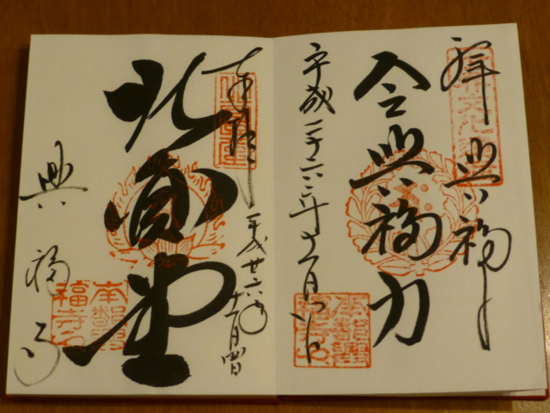 拝 興福寺
令興福力
平成二十六年十一月四日
奉拝 平成廿六年十一月四日
北圓堂
興福寺
南都興
福寺